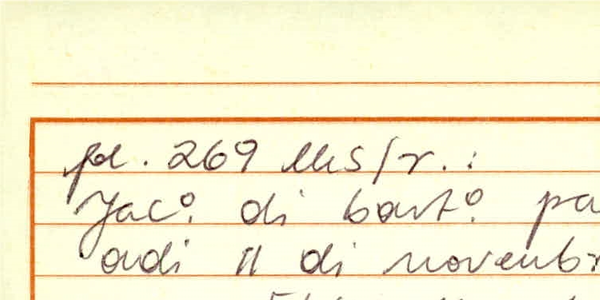 fol. 269 MS/r. :
Jac°. di bart°. pa
adi 11 di novembr